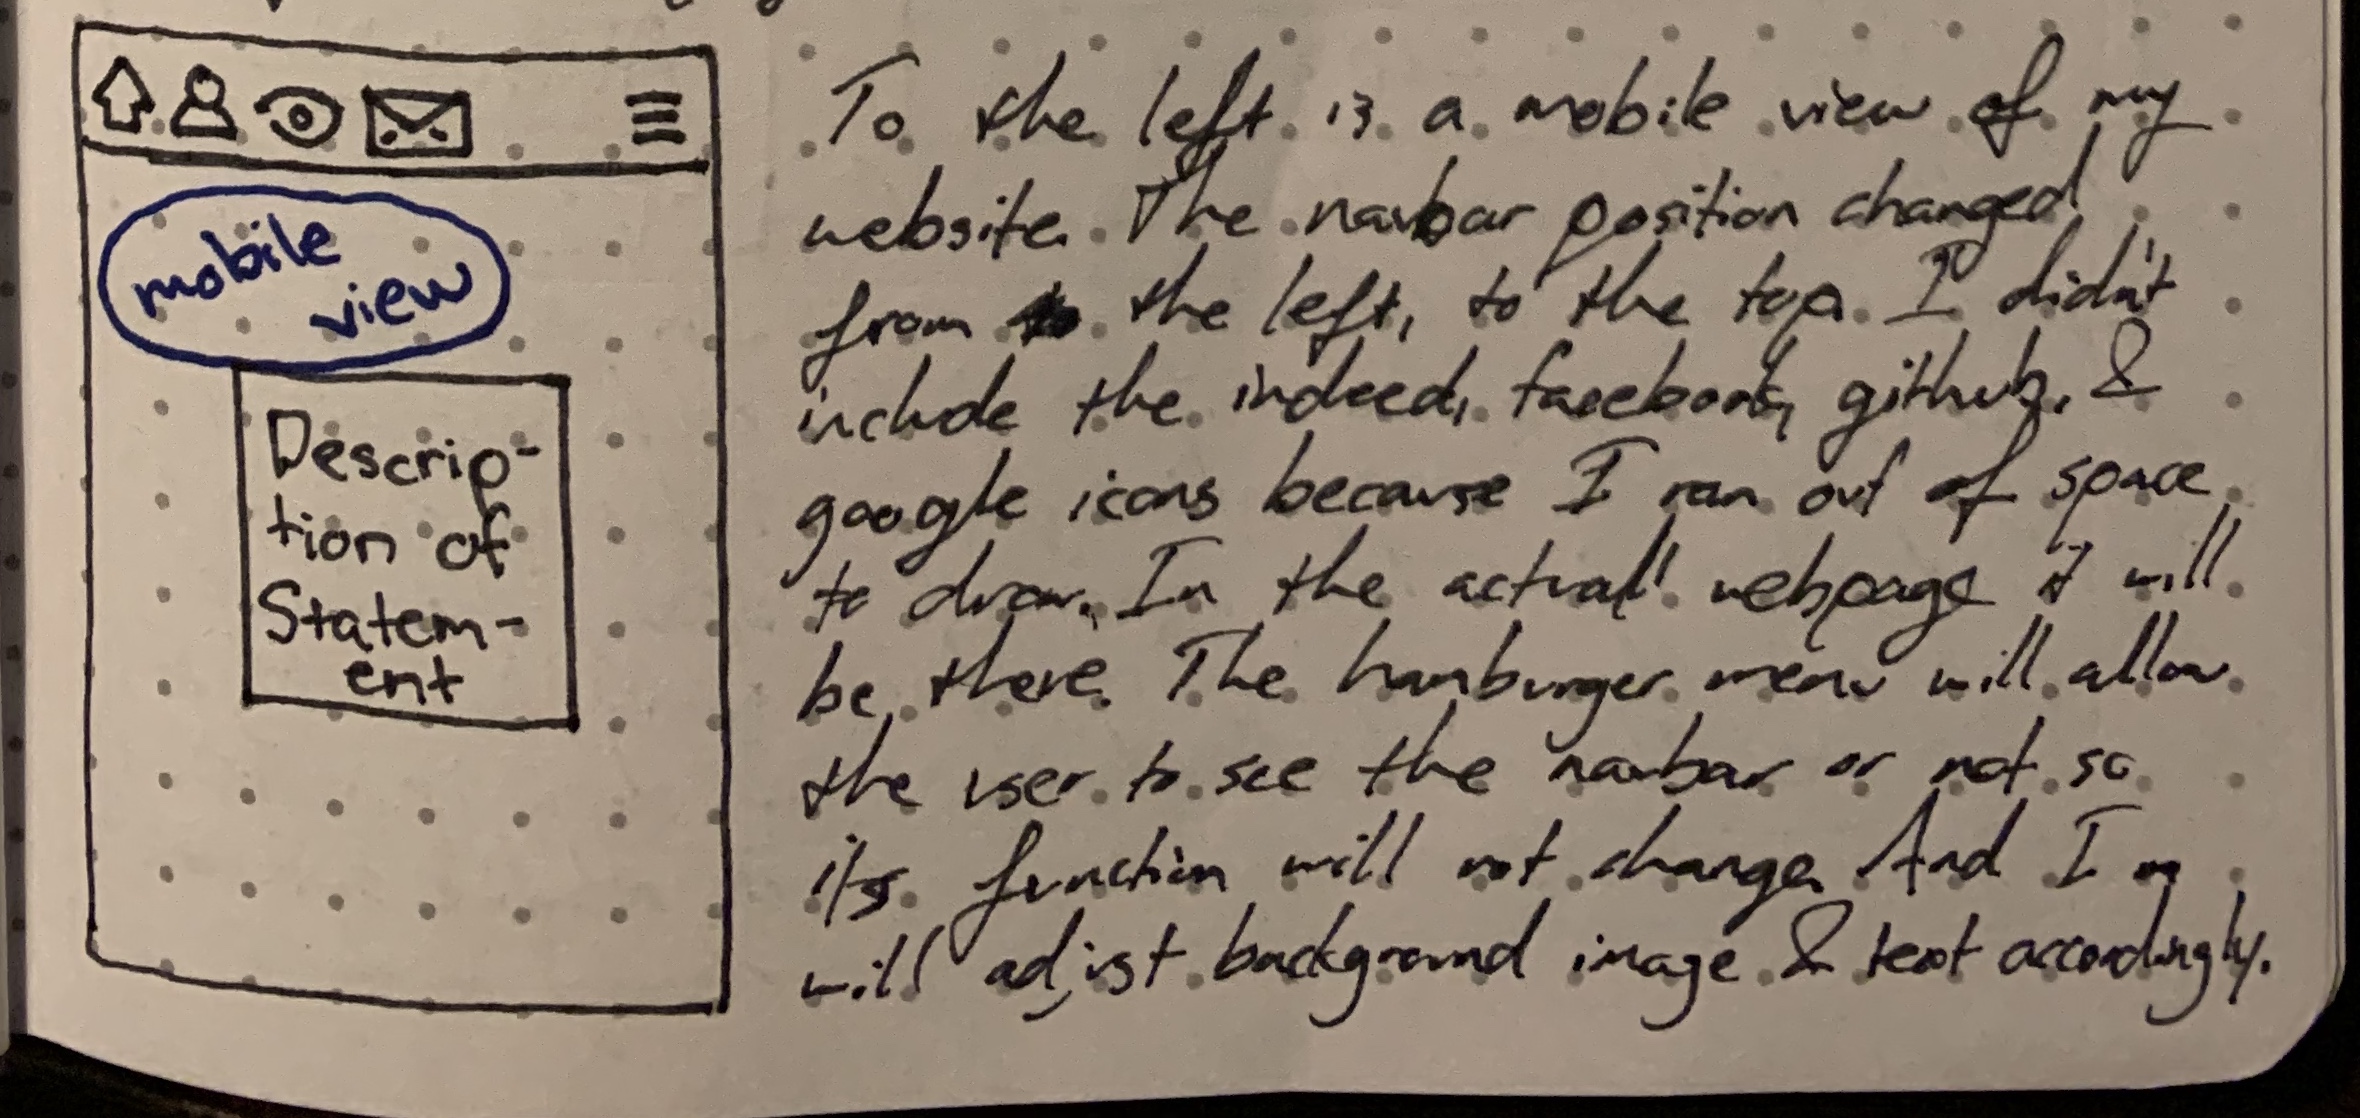 mobile
view
Descrip-
tion of
Statem-
ent
To the left is a mobile view of my
website. The navbar position changed
from the left, to the top. I didn't
include the indeed, facebook, github, &
google icons because I ran out of space
to draw. In the actuall webpage it will
be there. The hamburger menu will allow
the user to see the navbar or not so
its function will not change. And I
will adjust background image & text accordingly.